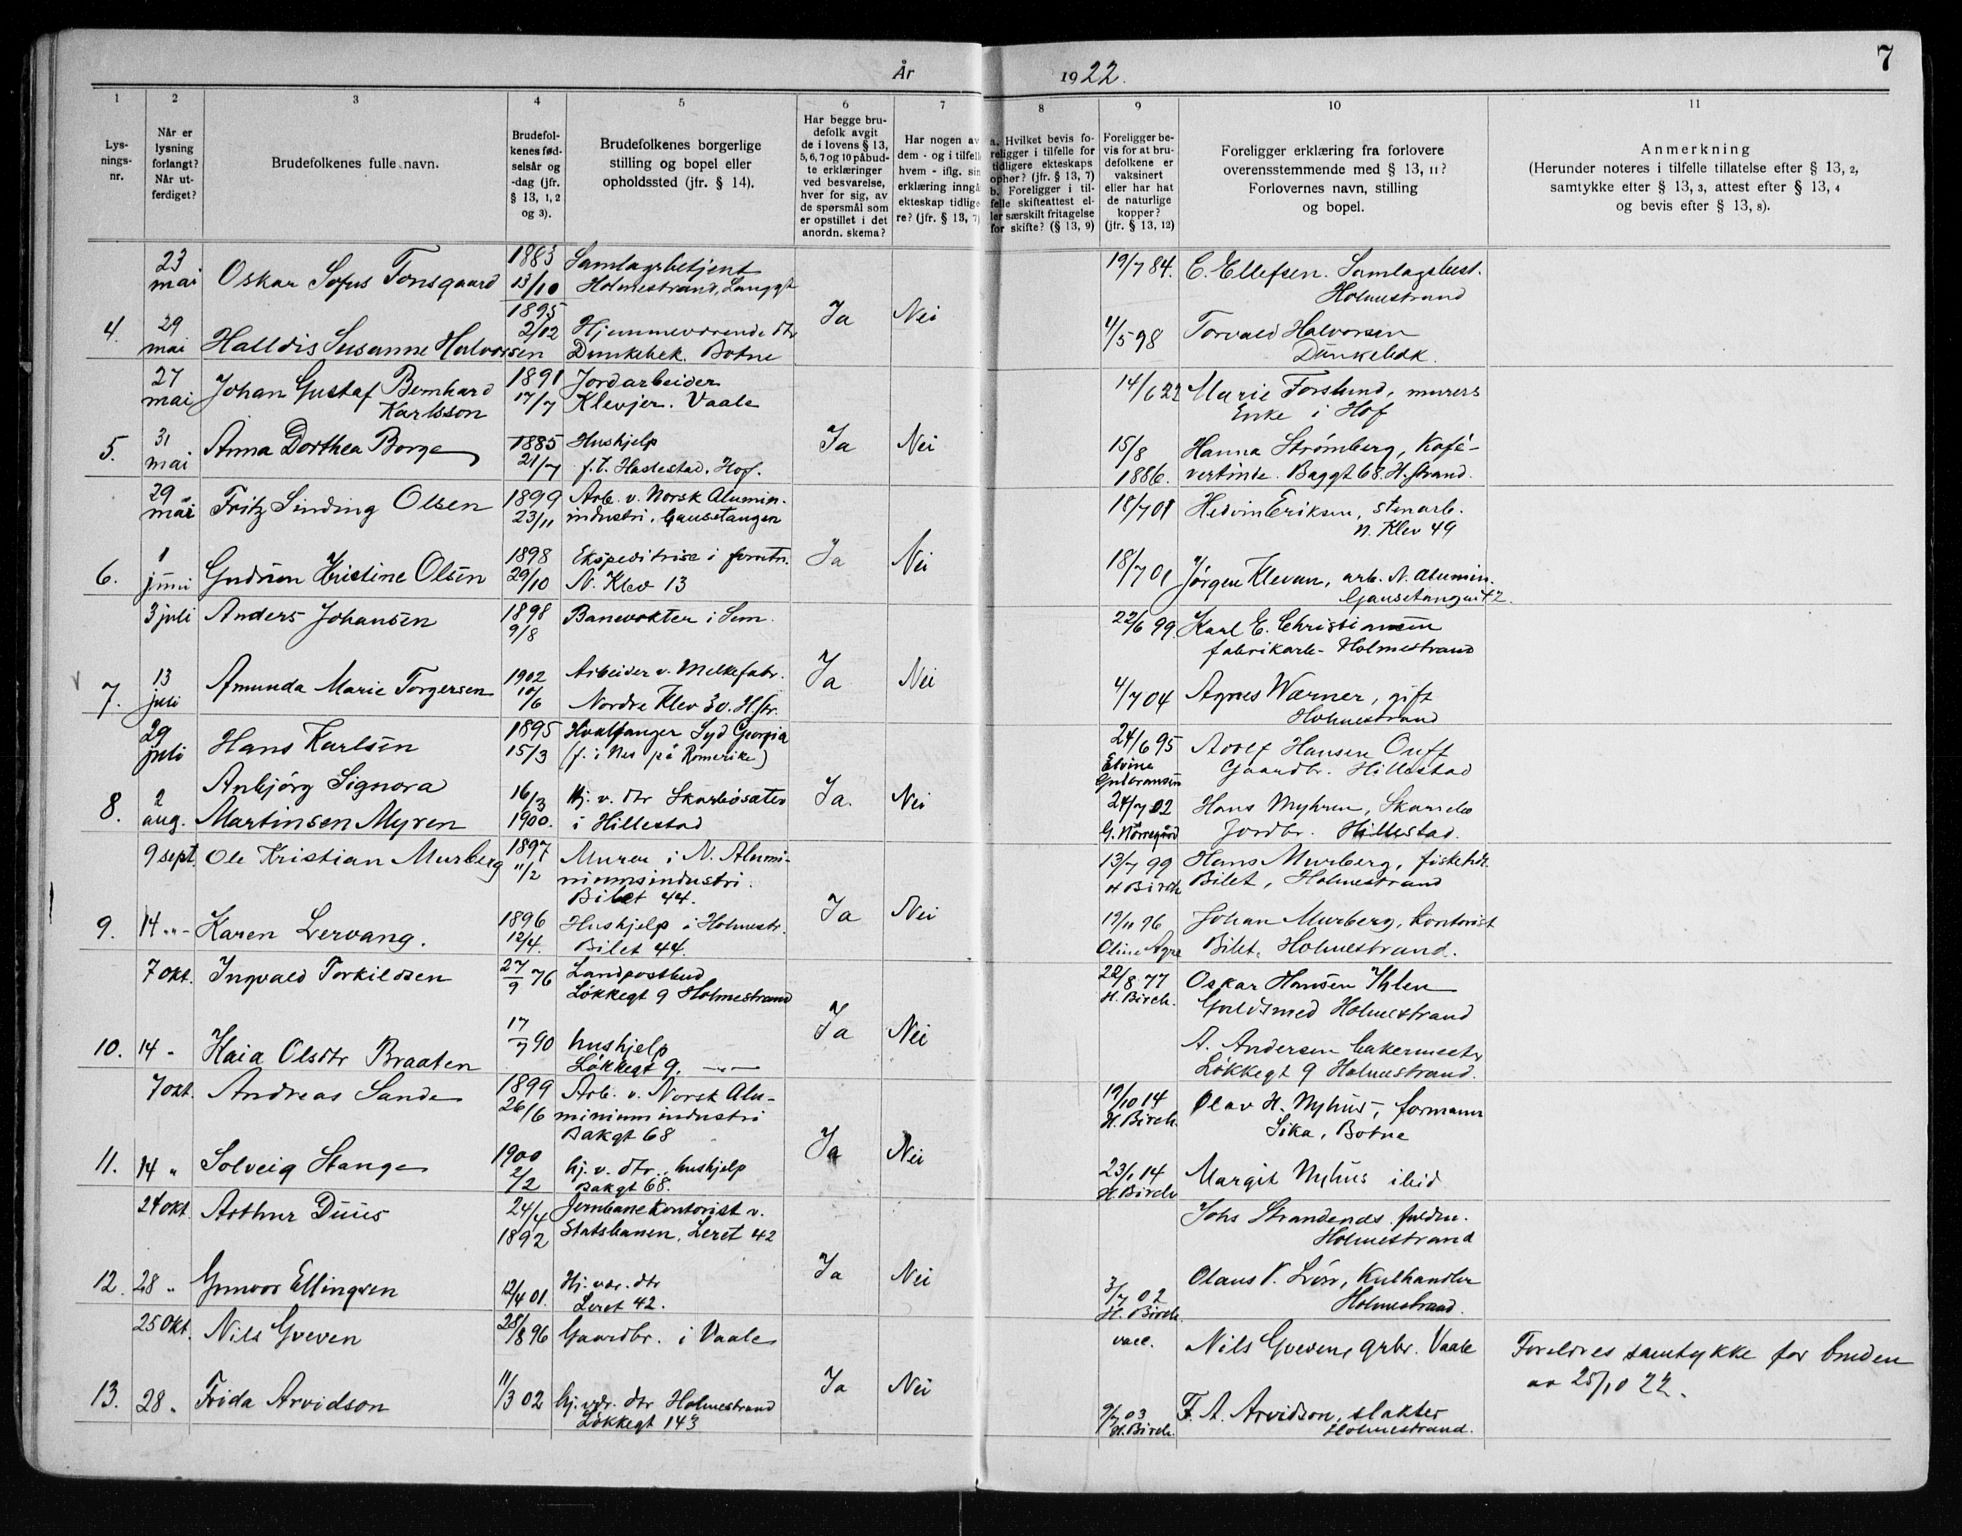 År 1922.
7
1 2 3 4 5 6 7 8 9 10 11
Lys-
nings-
nr.
Når er
lysning
forlangt?
Når ut-
ferdiget?
Brudefolkenes fulle navn.
Brudefol-
kenes fød-
selsår og
-dag (jfr.
§ 13, 1, 2
og 3).
Brudefolkenes borgerlige
stilling og bopel eller
opholdssted (jfr. § 14).
Har begge bru-
defolk avgit
de i lovens § 13,
5, 6, 7 og 10 påbud-
te erklæringer
ved besvarelse,
hver for sig, av
de spørsmål som
er opstillet i det
anordn. skema?
Har nogen av
dem - og i tilfelle
hvem - iflg. sin
erklæring inngå
ekteskap tidlige-
re? (jfr. § 13, 7)
a. Hvilket bevis fo-
religger i tilfelle for
tidligere ekteskaps
ophør? (jfr. § 13, 7)
b. Foreligger i til-
felle skifteattest el-
ler særskilt fritagelse
for skifte? (§ 13, 9)
Foreligger be-
vis for at bru-
defolkene er
vaksinert
eller har hat
de naturlige
kopper?
(jfr. § 13, 12)
Foreligger erklæring fra forlovere
overensstemmende med § 13, 11?
Forlovernes navn, stilling
og bopel.
Anmerkning
(Herunder noteres i tilfelle tillatelse efter § 13, 2,
samtykke efter § 13, 3, attest efter § 13, 4
og bevis efter § 13, 8).
23 mai Oskar Sofus Tonsgaard 1883 13/10 Samlagsbetjent
Holmestrand, Langgt
19/7 84. C. Ellefsen. Samlagsbest.
Holmestrand
4. 29 mai Halldis Susanne Halvorsen 1895 2/12 Hjemmeværende dtr
Dunkebek. Botne
Ja Nei 4/5 98 Torvald Halvorsen
Dunkebek.
27 mai Johan Gustaf Bernhard
Karlsson
1891 17/7 Jordarbeider
Klevjer. Vaale
14/6 22 Marie Forslund, murers
Enke i Hof
5. 31 mai Anna Dorthea Borge 1885 21/7 Hushjelp
f. t. Haslestad. Hof.
Ja Nei 15/8 1886. Hanna Strømberg, Kafé-
vertinde. Baggt 68 H.strand.
29 mai Fritz Sinding Olsen 1899 23/11 Arb. v. Norsk Alumin.
industri, Gausetangen
18/7 01 Hedvin Eriksen, stenarb.
N. Klev 49
6. 1 juni Gudrun Kristine Olsen 1898 29/10 Ekspeditrise i forretn.
N. Klev 13
Ja Nei 18/7 01 Jørgen Klevan, arb. N. Alumin.
Gausetangen 42.
3 juli Anders Johansen 1898 9/8 Banevokter i Sem.
22/6 99 Karl E. Christiansen
fabrikarb. Holmestrand
7. 13 juli Amunda Marie Torgersen 1902 10/6 Arbeider v. Melkefabr.
Nordre Klev 30. H.str.
Ja Nei 4/7 04 Agnes Wærner, gift
Holmestrand
29 juli Hans Karlsen 1895 15/3 Hvalfanger Syd Georgia
(f. i Nes på Romerike)
24/6 95 Elvine Gulbransen
Adolf Hansen
Gaardbr. Hillestad
8. 2 aug. Anbjørg Signora
Martinsen Myren
16/3 1900. Hj. v. dtr Skarbøsæter
i Hillestad
Ja. Nei 24/7 02 G. Nørregård
Hans Myhren,
Jordbr. Hillestad.
9 sept. Ole Kristian Murberg 1897 11/2 Murer i N. Alumi-
niumsindustri.
Bilet 44.
13/7 99 H Birch Hans Murberg, fiskehdl.
Bilet, Holmestrand
9. 14 -"- Karen Lervang. 1896 12/4. Hushjelp i Holmestr.
Bilet 44.
Ja Nei 19/11 96 Oline Agre Johan Murberg, kontorist
Bilet, Holmestrand.
7 okt. Ingvald Torkildsen 27/9 76 Landpostbud
Løkkegt 9 Holmestrand
22/8 77 H. Birch. Oskar Hansen Ihlen
Guldsmed Holmestrand
10. 14 - Kaia Olsdtr Braaten 17/7 90 hushjelp
Løkkegt 9. -"-
Ja Nei A. Andersen bakermester
Løkkegt 9 Holmestrand.
7 okt. Andreas Sande 1899 26/6 Arb. v. Norsk Alu-
miniumindustri
Bakgt 68
19/10 14 H. Birch. Olav H. Nyhus, formann
Sika, Botne
11. 14 " Solveig Stange 1900 2/2 hj. v. dtr., hushjelp
Bakgt 68.
Ja Nei 23/1 14 H. Birch Margit Nyhus ibid
24 okt. Arthur Duus 24/4 1892 Jernbanekontorist v.
Statsbanen, Leret 42
Johs Strandende
Holmestrand
12. 28 " Gunvor Ellingsen 12/4 01. Hj. vær. dtr
Leret 42.
Ja Nei 3/7 02 H. Birch. Olaus V. Kulhandler
Holmestrand.
25 Okt. Nils Greven 28/8 96 Gaardbr. i Vaale
vacc. Nils Greven, grbr. Vaale
Foreldres samtykke for bruden
av 25/10 22.
13. 28 " Frida Arvidson 11/3 02 hj. vær. dtr Holmestrand
Løkkegt 143
Ja Nei 9/7 03 H. Birch. F. A. Arvidson, slakter
Holmestrand.